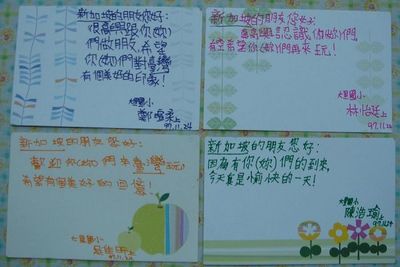 新加坡的朋友你好：
很高興跟你(妳)
們做朋友，希望
你(妳)們對臺灣
有個美好的印象！
大里國小
鄭
97.11.24
新加坡的朋友您好：
真高興認識你(妳)們
有空希望你(妳)們再來玩！
大里國小
林怡廷上
97.11.24
新加坡的朋友您好：
歡迎你(妳)們來臺灣玩，
希望有個美好的回憶！
大里國小
97.11.24
新加坡的朋友您好：
因為有你(妳)們的到來，
今天真是愉快的一天！
大里國小
陳浩瑜上
97.11.24